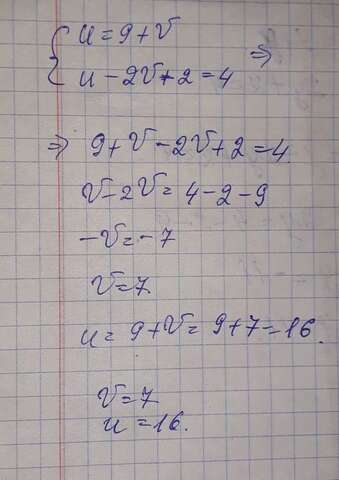 { u = 9 + v
u - 2v + 2 = 4 ⇒
⇒ 9 + v - 2v + 2 = 4.
v - 2v = 4 - 2 - 9
-v = -7
v = 7.
u = 9 + v = 9 + 7 = 16.
v = 7
u = 16.